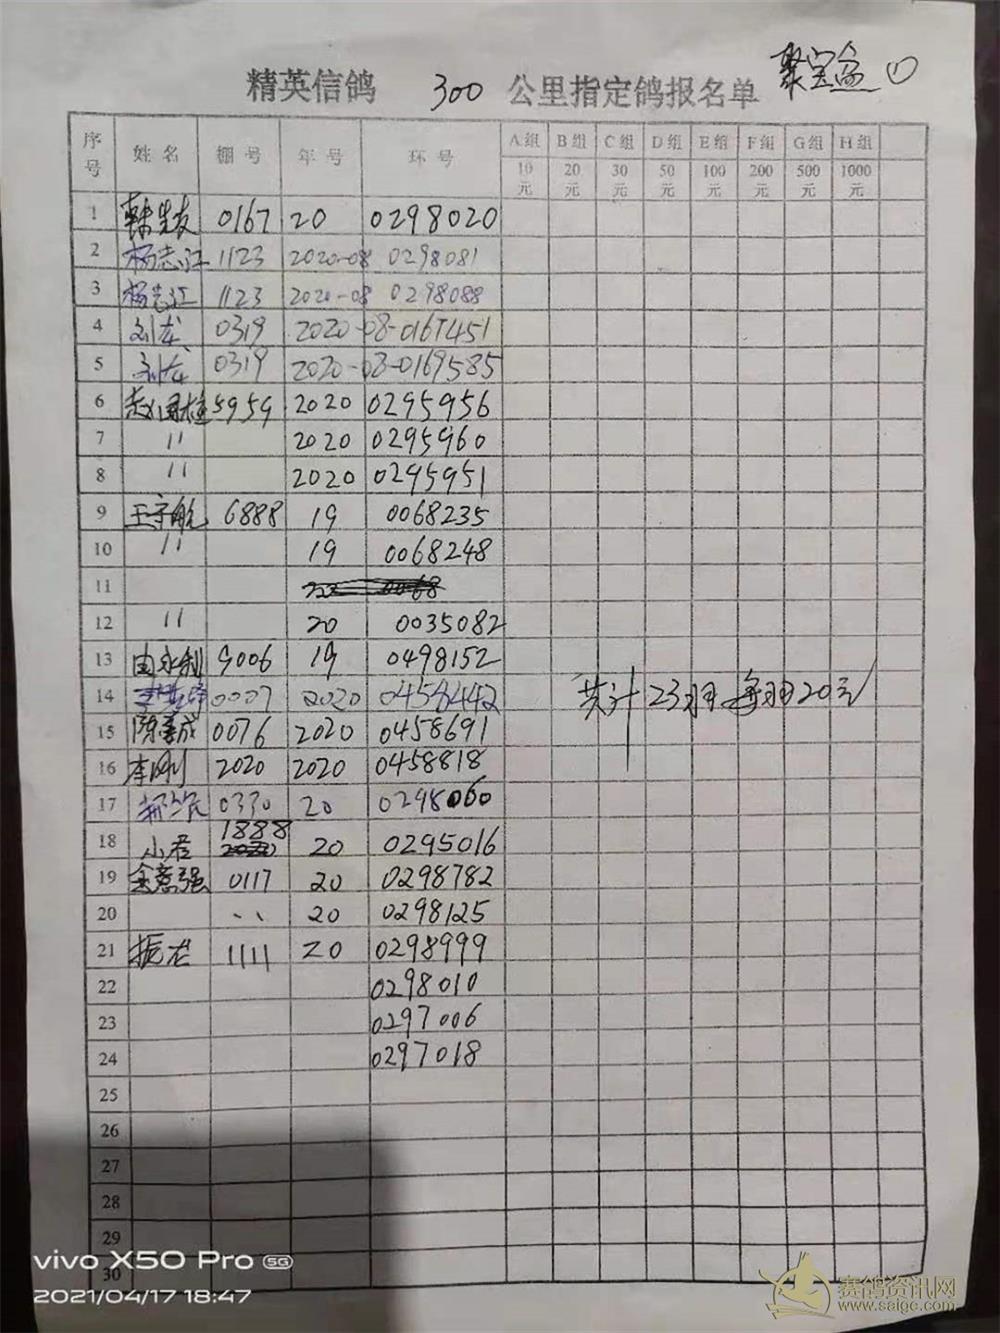 精英信鸽 300 公里指定鸽报名单 聚宝盆 ①
序号 姓名 棚号 年号 环号 A组 B组 C组 D组 E组 F组 G组 H组
10元 20元 30元 50元 100元 200元 500元 1000元
1 0167 20 0298020
2 杨志江 1123 2020-08 0298081
3 杨志江 1123 2020-08 0298088
4 刘龙 0319 2020-08-0167451
5 刘龙 0319 2020-08-0169585
6 赵国柱 5959 2020 0295956
7 〃 2020 0295960
8 〃 2020 0295951
9 王宇航 6888 19 0068235
10 〃 19 0068248
11
12 〃 20 0035082
13 由永利 9006 19 0498152
14 0007 2020 0458442
共计23羽 每羽20元
15 0076 2020 0458691
16 李刚 2020 2020 0458818
17 0330 20 0298060
18 小君 1888 20 0295016
19 金意强 0117 20 0298782
20 〃 20 0298125
21 振龙 1111 20 0298999
22 0298010
23 0297006
24 0297018
25
26
27
28
29
30
vivo X50 Pro 5G
2021/04/17 18:47
赛鸽资讯网
www.saige.com